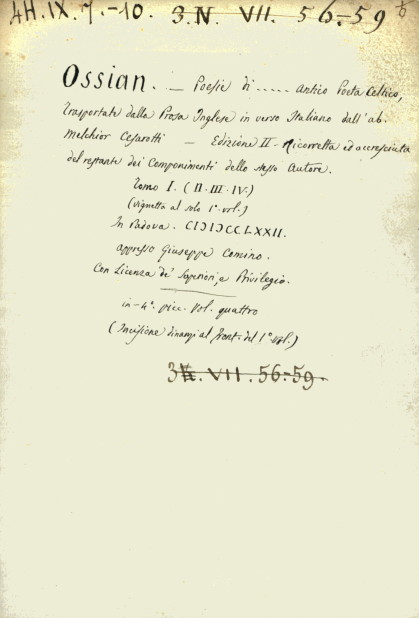 4H.IX.7.-10. 3.N. VII. 56=59
Ossian. — Poesie di ..... Antico Poeta Celtico,
trasportate dalla Prosa Inglese in verso Italiano dall'ab.
Melchior Cesarotti — Edizione II - Ricorretta ed accresciuta
del restante dei Componimenti dello stesso Autore.
Tomo I. (II. III. IV.)
(vignetta al solo 1° vol.)
In Padova. CIƆIƆCCLXXII.
appresso Giuseppe Comino.
Con Licenza de' Superiori, e Privilegio.
in-4°. picc. vol. quattro
(Incisione dinanzi al front. del 1° vol.)
VII. 56=59.